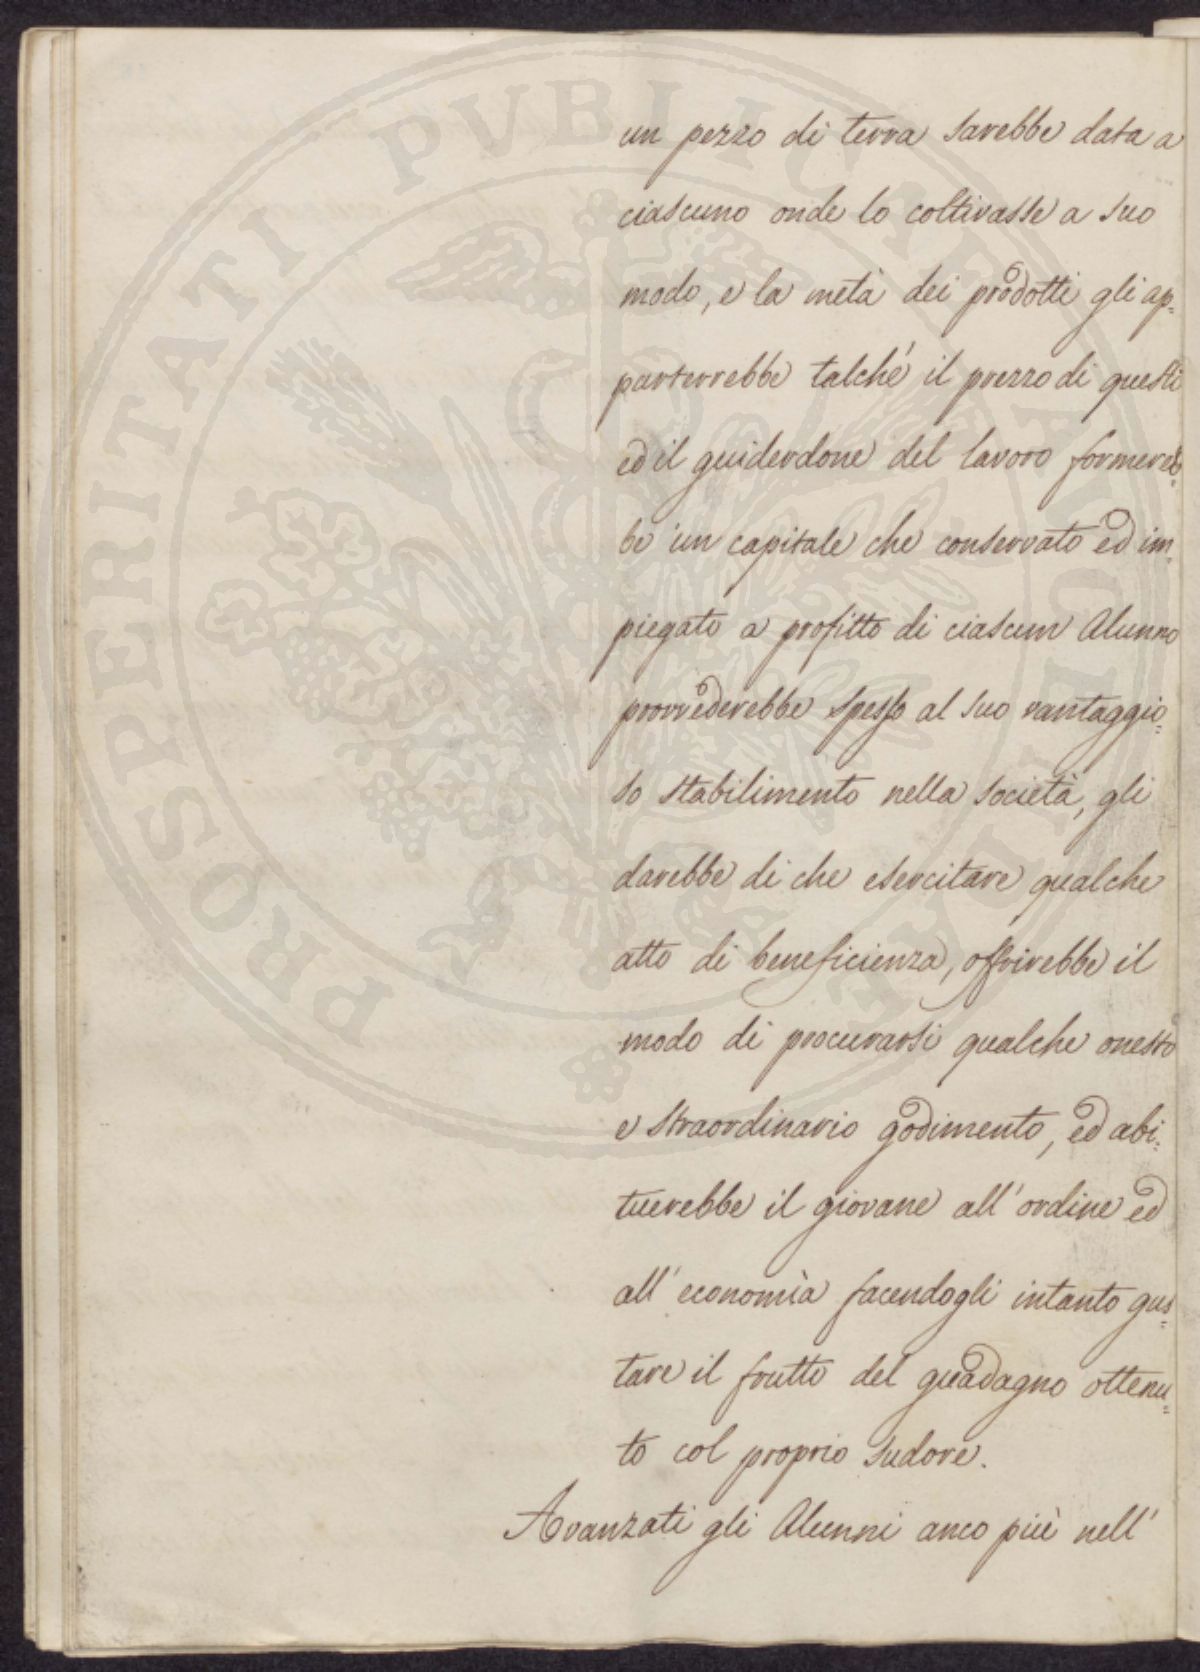 un pezzo di terra sarebbe data a
ciascuno onde lo coltivasse a suo
modo, e la metà dei prodotti gli ap=
parterrebbe talché il prezzo di questi
ed il guiderdone del lavoro formereb=
be un capitale che conservato ed im=
piegato a profitto di ciascun Alunno
provvederebbe spesso al suo vantaggio=
so stabilimento nella società, gli
darebbe di che esercitare qualche
atto di beneficienza, offrirebbe il
modo di procurarsi qualche onesto
e straordinario godimento, ed abi=
tuerebbe il giovane all'ordine ed
all'economìa facendogli intanto gus=
tare il frutto del guadagno ottenu=
to col proprio sudore.
Avanzati gli Alunni anco più nell'
PROSPERITATI PVBLICAE AVGENDAE